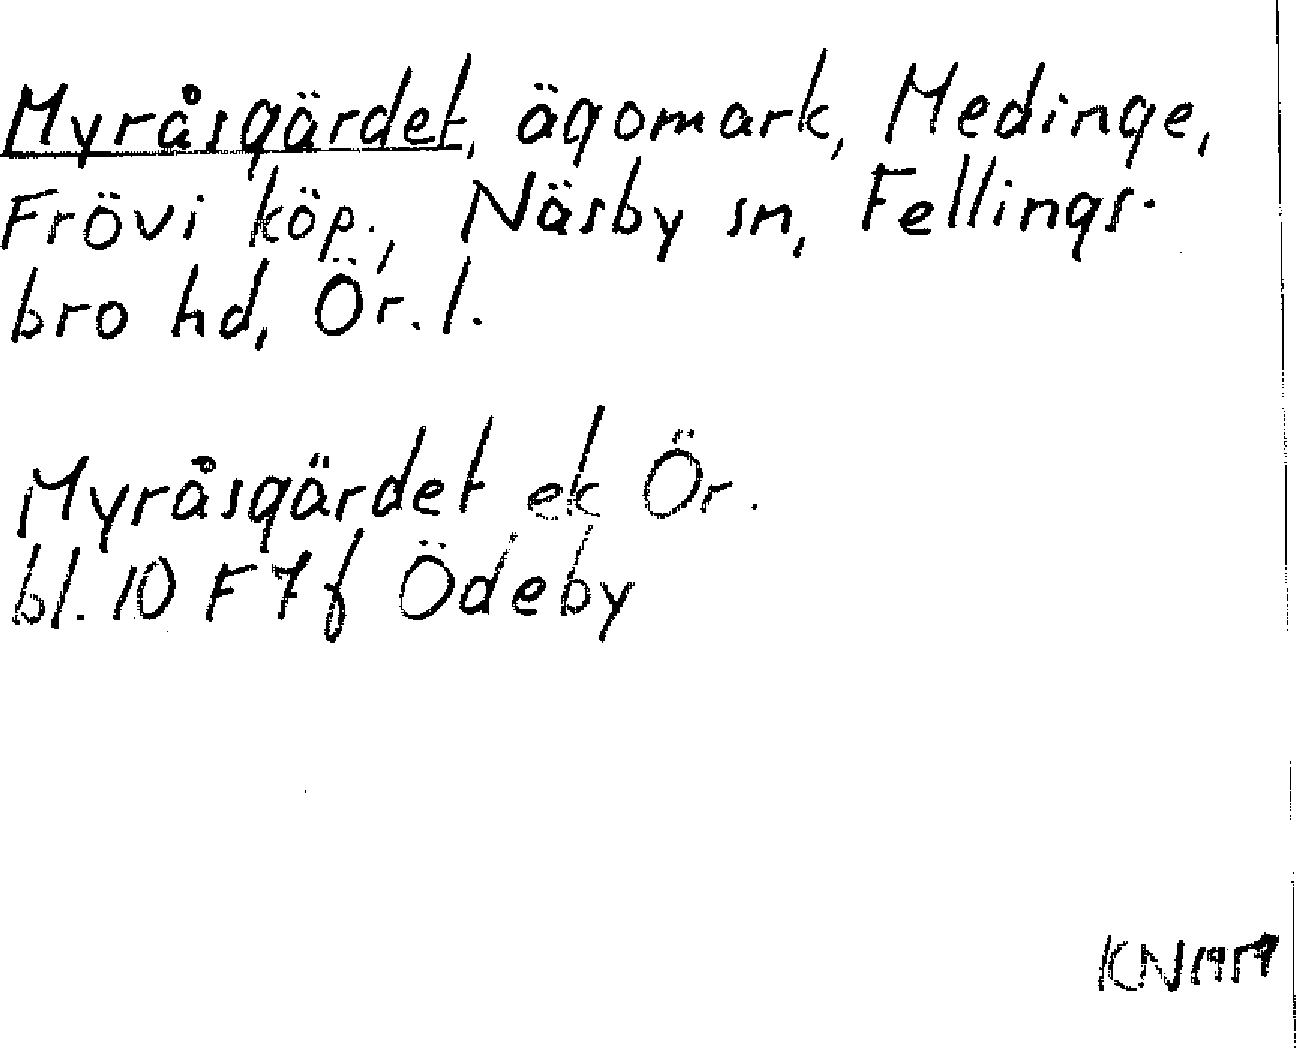 Myråsgärdet, ägomark, Medinge,
Frövi köp., Näsby sn, Fellings-
bro hd, Ör. l.
Myråsgärdet ek Ör.
bl. 10 F 7 f Ödeby
KN 1959